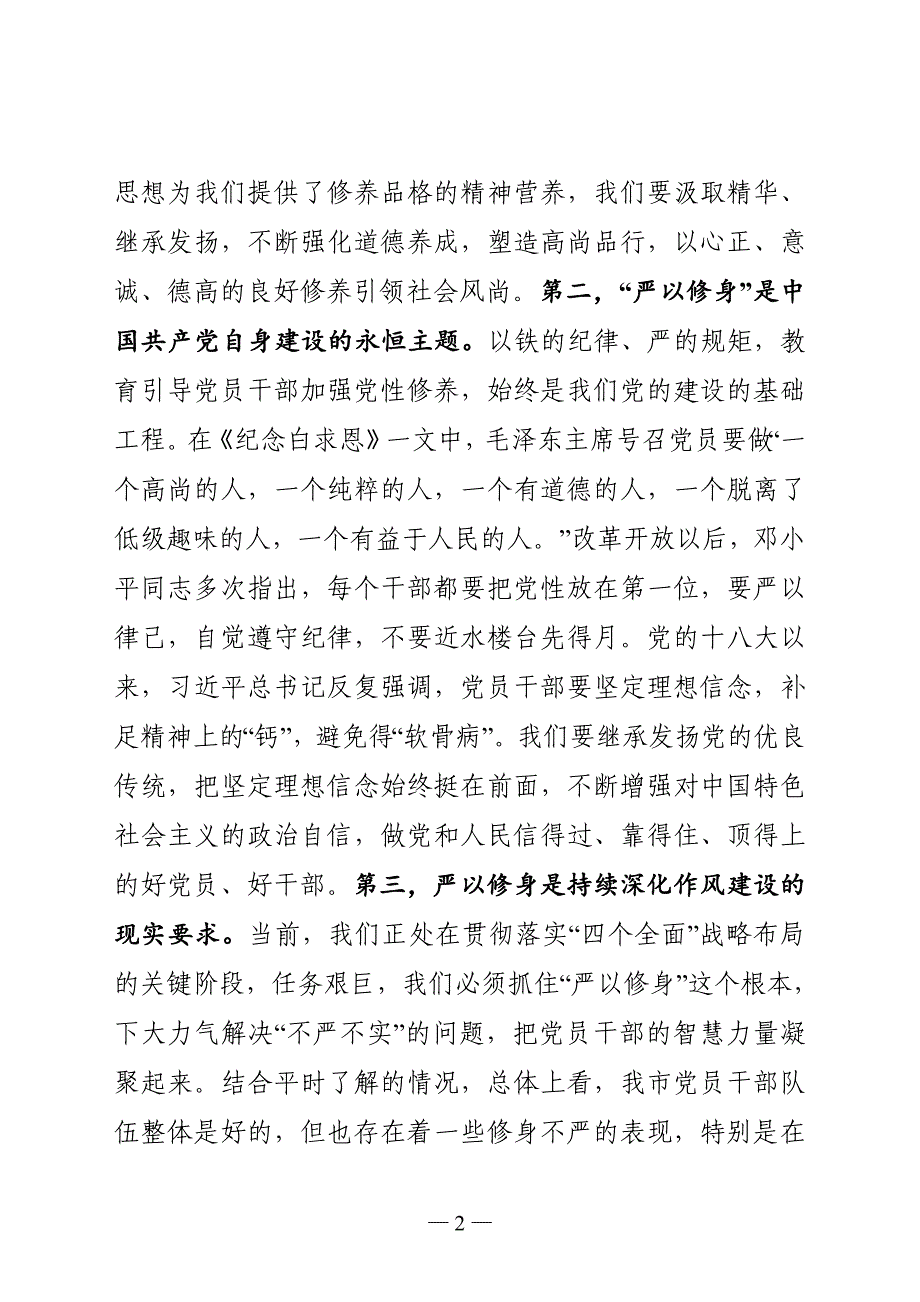 思想为我们提供了修养品格的精神营养，我们要汲取精华、
继承发扬，不断强化道德养成，塑造高尚品行，以心正、意
诚、德高的良好修养引领社会风尚。第二，“严以修身”是中
国共产党自身建设的永恒主题。以铁的纪律、严的规矩，教
育引导党员干部加强党性修养，始终是我们党的建设的基础
工程。在《纪念白求恩》一文中，毛泽东主席号召党员要做“一
个高尚的人，一个纯粹的人，一个有道德的人，一个脱离了
低级趣味的人，一个有益于人民的人。”改革开放以后，邓小
平同志多次指出，每个干部都要把党性放在第一位，要严以
律己，自觉遵守纪律，不要近水楼台先得月。党的十八大以
来，习近平总书记反复强调，党员干部要坚定理想信念，补
足精神上的“钙”，避免得“软骨病”。我们要继承发扬党的优良
传统，把坚定理想信念始终挺在前面，不断增强对中国特色
社会主义的政治自信，做党和人民信得过、靠得住、顶得上
的好党员、好干部。第三，严以修身是持续深化作风建设的
现实要求。当前，我们正处在贯彻落实“四个全面”战略布局
的关键阶段，任务艰巨，我们必须抓住“严以修身”这个根本，
下大力气解决“不严不实”的问题，把党员干部的智慧力量凝
聚起来。结合平时了解的情况，总体上看，我市党员干部队
伍整体是好的，但也存在着一些修身不严的表现，特别是在
— 2 —